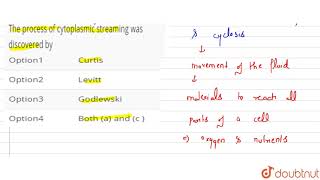 The process of cytoplasmic streaming was
discovered by
Option1 Curtis
Option2 Levitt
Option3 Godlewski
Option4 Both (a) and (c )
& cyclosis
↓
movement of the fluid
↓
materials to reach all
parts of a cell
⇒ oxygen & nutrients
doubtnut